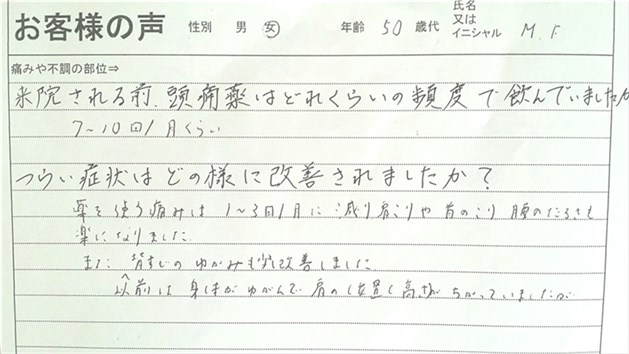 お客様の声 性別 男 女 年齢 50 歳代 氏名又はイニシャル M.F
痛みや不調の部位⇒
来院される前、頭痛薬はどれくらいの頻度で飲んでいましたか
7〜10回/月くらい
つらい症状はどの様に改善されましたか?
薬を使う痛みは1〜3回/月に減り肩こりや首のこり 腰のだるさも
楽になりました
また 背すじのゆがみも少し改善しました
以前は身体がゆがんで肩の位置(高さ)がちがっていましたが